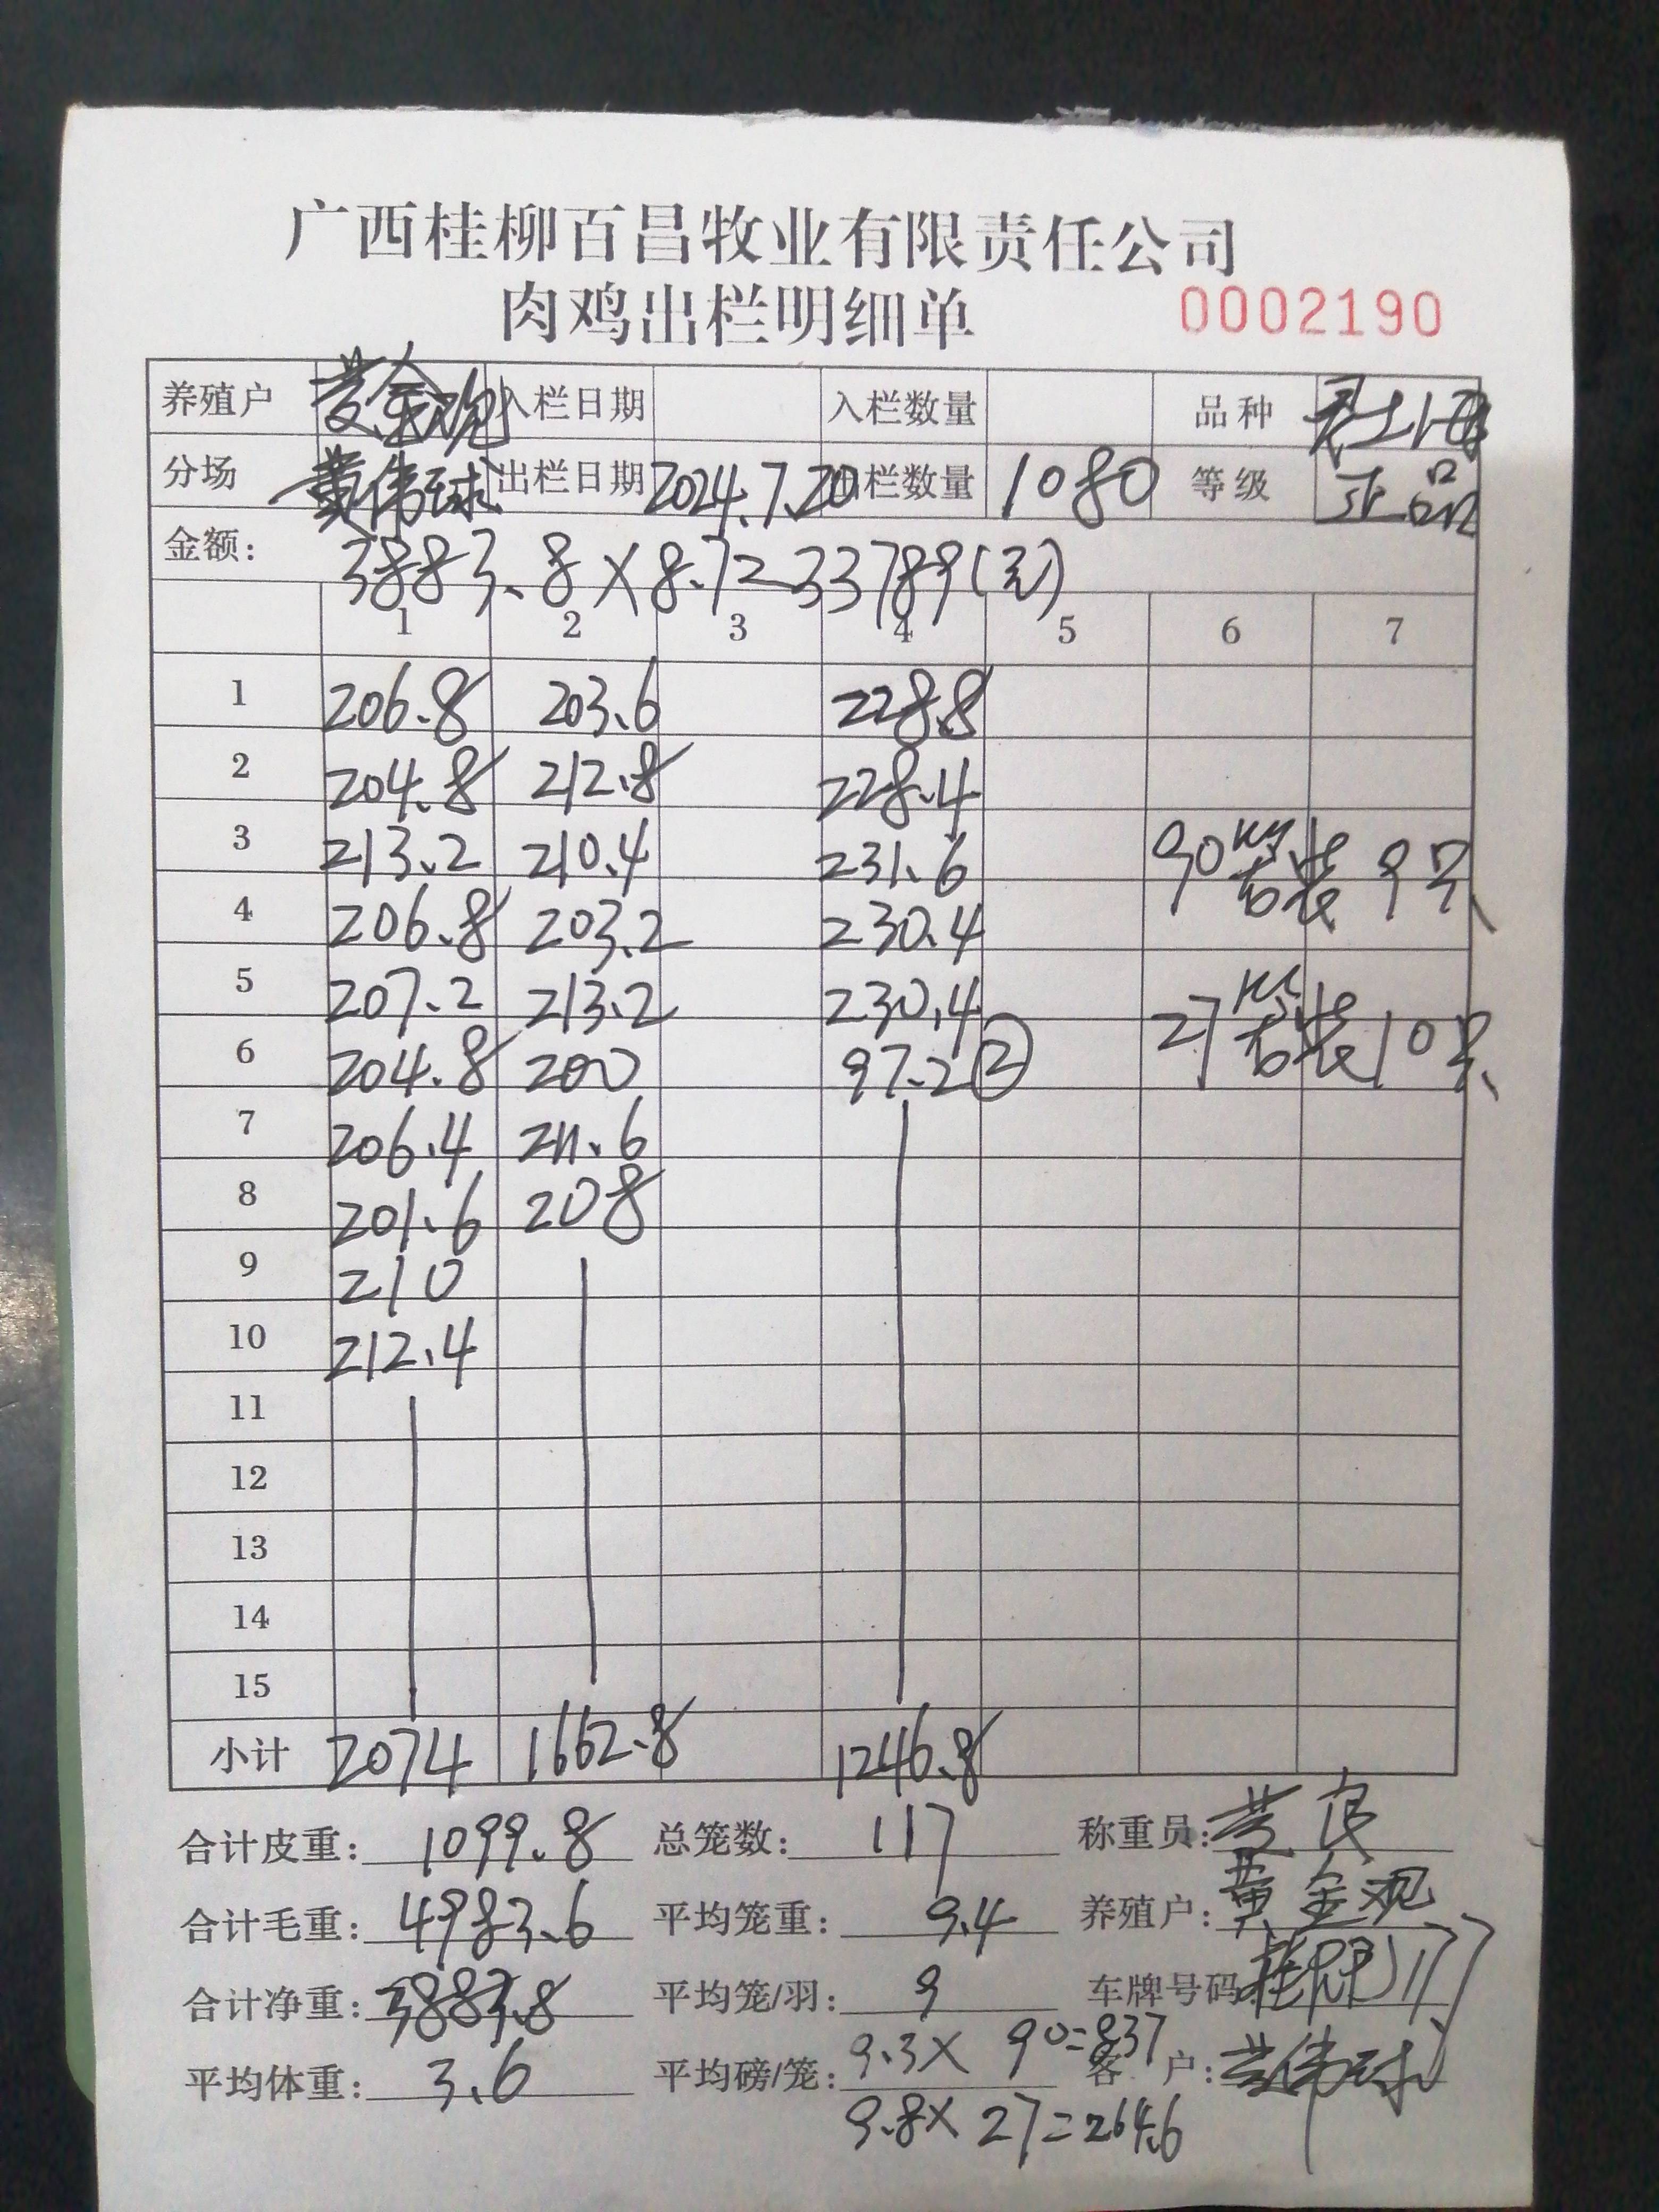 广西桂柳百昌牧业有限责任公司
肉鸡出栏明细单 0002190
养殖户 黄金观 入栏日期 入栏数量 品种
分场 黄伟球 出栏日期 2024.7.20 出栏数量 1080 等级 正品
金额: 3883.8×8.7=33789(元)
1 2 3 4 5 6 7
1 206.8 203.6 228.8
2 204.8 212.8 228.4
3 213.2 210.4 231.6 90 装9只
4 206.8 203.2 230.4
5 207.2 213.2 230.4
6 204.8 200 97.2 ② 27 装10只
7 206.4 211.6
8 201.6 208
9 210
10 212.4
11
12
13
14
15
小计 2074 1662.8 1246.8
合计皮重: 1099.8 总笼数: 117 称重员: 黄良
合计毛重: 4983.6 平均笼重: 9.4 养殖户: 黄金观
合计净重: 3883.8 平均笼/羽: 9 车牌号码:
平均体重: 3.6 平均磅/笼: 9.3×90=837 客户: 黄伟球
9.8×27=264.6